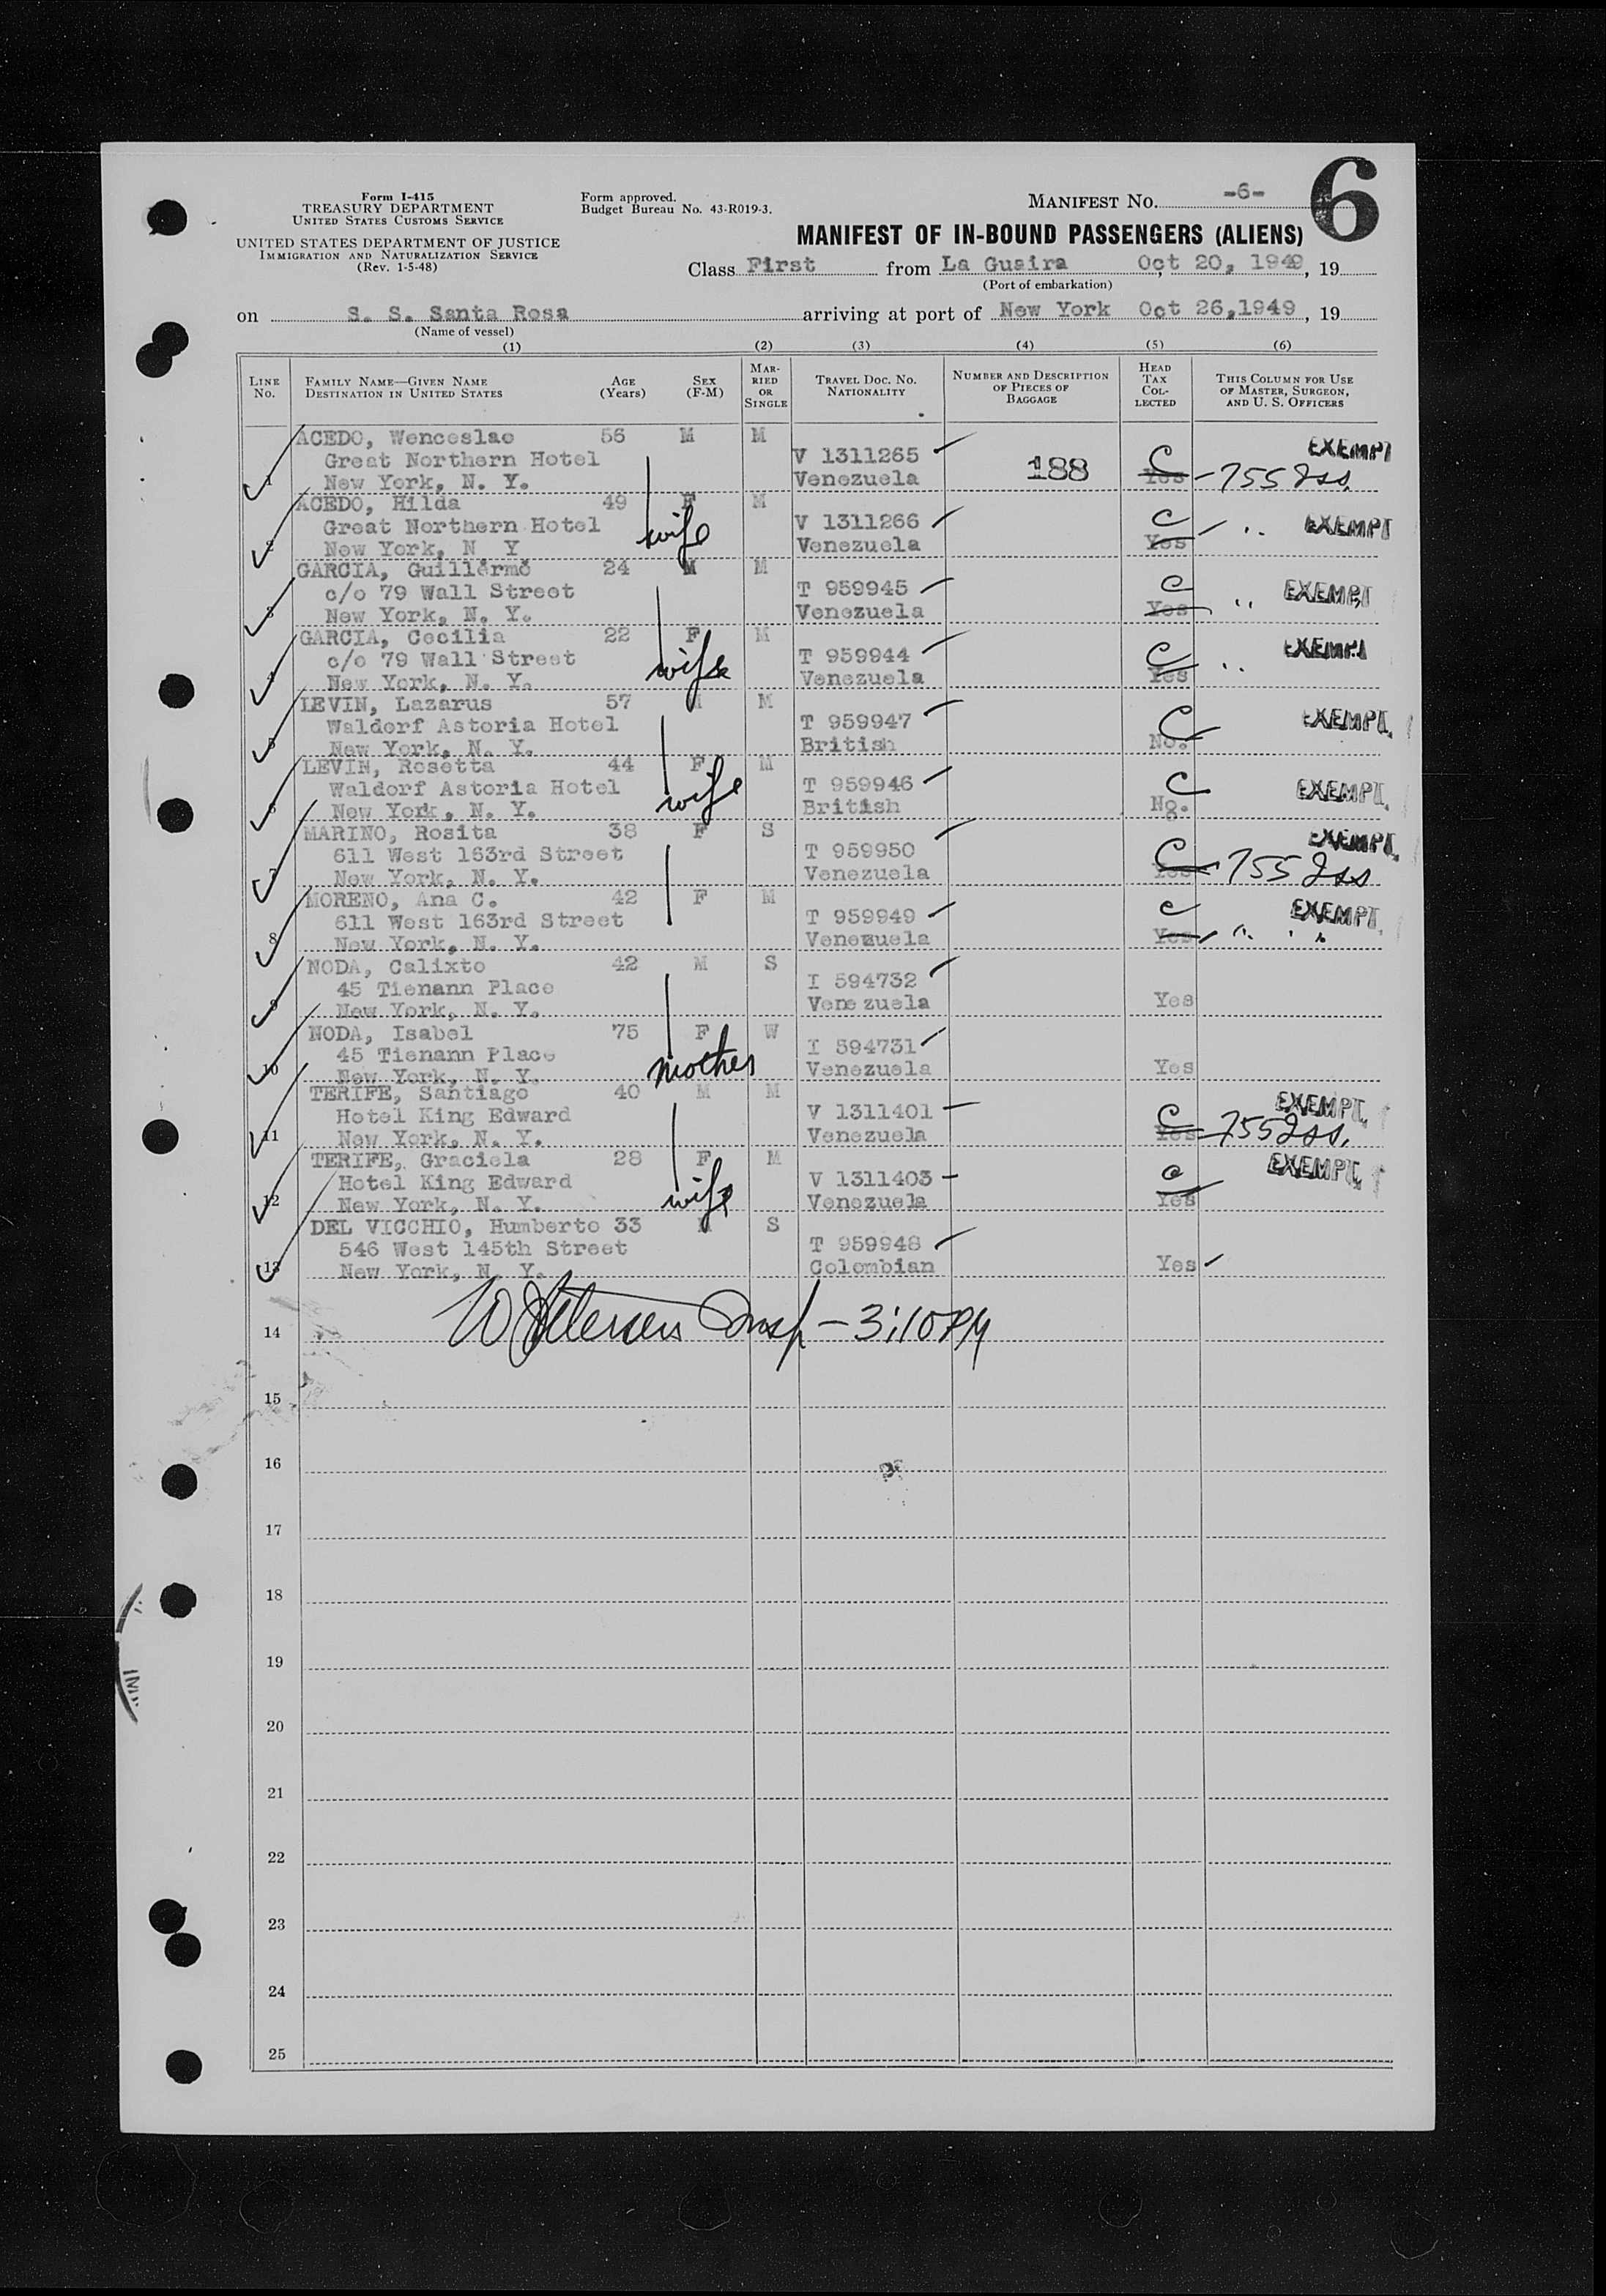 6
Form I-415
TREASURY DEPARTMENT
UNITED STATES CUSTOMS SERVICE
UNITED STATES DEPARTMENT OF JUSTICE
IMMIGRATION AND NATURALIZATION SERVICE
(Rev. 1-5-48)
Form approved.
Budget Bureau No. 43-R019-3.
MANIFEST No. -6-
MANIFEST OF IN-BOUND PASSENGERS (ALIENS)
Class First from La Guaira Oct 20, 1949, 19
(Port of embarkation)
on S. S. Santa Rosa arriving at port of New York Oct 26,1949, 19
(Name of vessel)
(1) (2) (3) (4) (5) (6)
LINE No. FAMILY NAME—GIVEN NAME DESTINATION IN UNITED STATES AGE (Years) SEX (F-M) MARRIED OR SINGLE TRAVEL DOC. NO. NATIONALITY NUMBER AND DESCRIPTION OF PIECES OF BAGGAGE HEAD TAX COLLECTED THIS COLUMN FOR USE OF MASTER, SURGEON, AND U. S. OFFICERS
ACEDO, Wenceslao 56 M M EXEMPT
Great Northern Hotel V 1311265 C
1 New York, N. Y. Venezuela 188 Yes 755
ACEDO, Hilda 49 F M
Great Northern Hotel wife V 1311266 C " EXEMPT
2 New York, N. Y Venezuela Yes
GARCIA, Guillermo 24 M M
c/o 79 Wall Street T 959945 C EXEMPT
3 New York, N. Y. Venezuela Yes "
GARCIA, Cecilia 22 F M
c/o 79 Wall Street wife T 959944 C EXEMPT
4 New York, N. Y. Venezuela Yes "
LEVIN, Lazarus 57 M M
Waldorf Astoria Hotel T 959947 C EXEMPT.
5 New York, N. Y. British No.
LEVIN, Rosetta 44 F M
Waldorf Astoria Hotel wife T 959946 C EXEMPT.
6 New York, N. Y. British No.
MARINO, Rosita 38 F S EXEMPT.
611 West 163rd Street T 959950 C
7 New York, N. Y. Venezuela Yes 755
MORENO, Ana C. 42 F M
611 West 163rd Street T 959949 C EXEMPT.
8 New York, N. Y. Venezuela Yes " "
NODA, Calixto 42 M S
45 Tienann Place I 594732
9 New York, N. Y. Venezuela Yes
NODA, Isabel 75 F W
45 Tienann Place mother I 594731
10 New York, N. Y. Venezuela Yes
TERIFE, Santiago 40 M M EXEMPT.
Hotel King Edward V 1311401 C
11 New York, N. Y. Venezuela Yes 755
TERIFE, Graciela 28 F M EXEMPT.
Hotel King Edward wife V 1311403 C
12 New York, N. Y. Venezuela Yes
DEL VICCHIO, Humberto 33 M S
546 West 145th Street T 959948
13 New York, N. Y. Colombian Yes
14 Insp - 3:10 PM
15
16
17
18
19
20
21
22
23
24
25